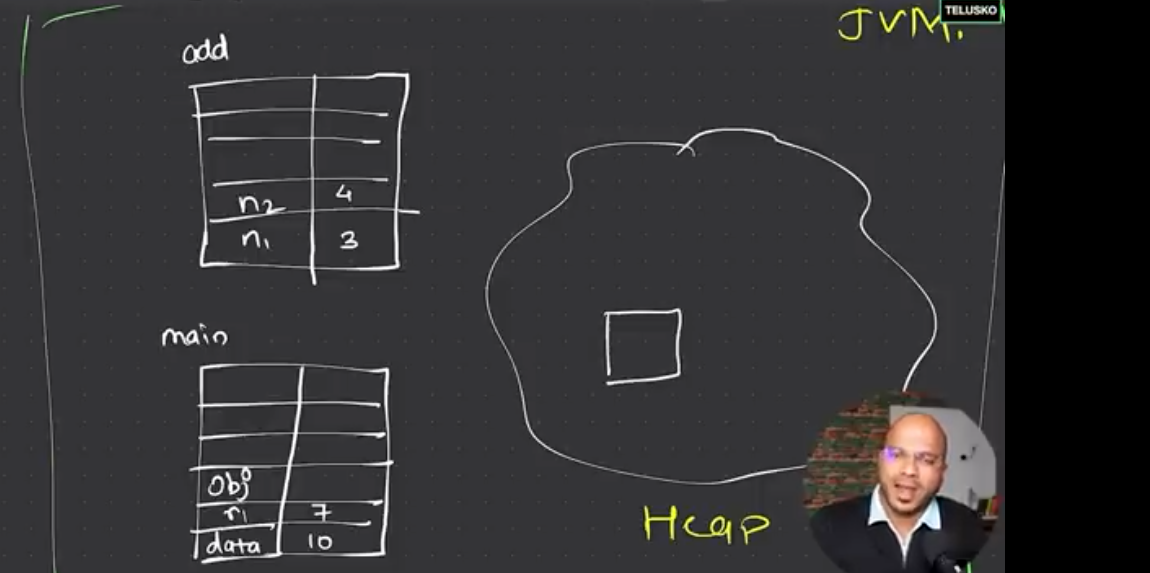 TELUSKO
JVM.
add
n2 4
n1 3
main
obj
r1 7
data 10
Heap